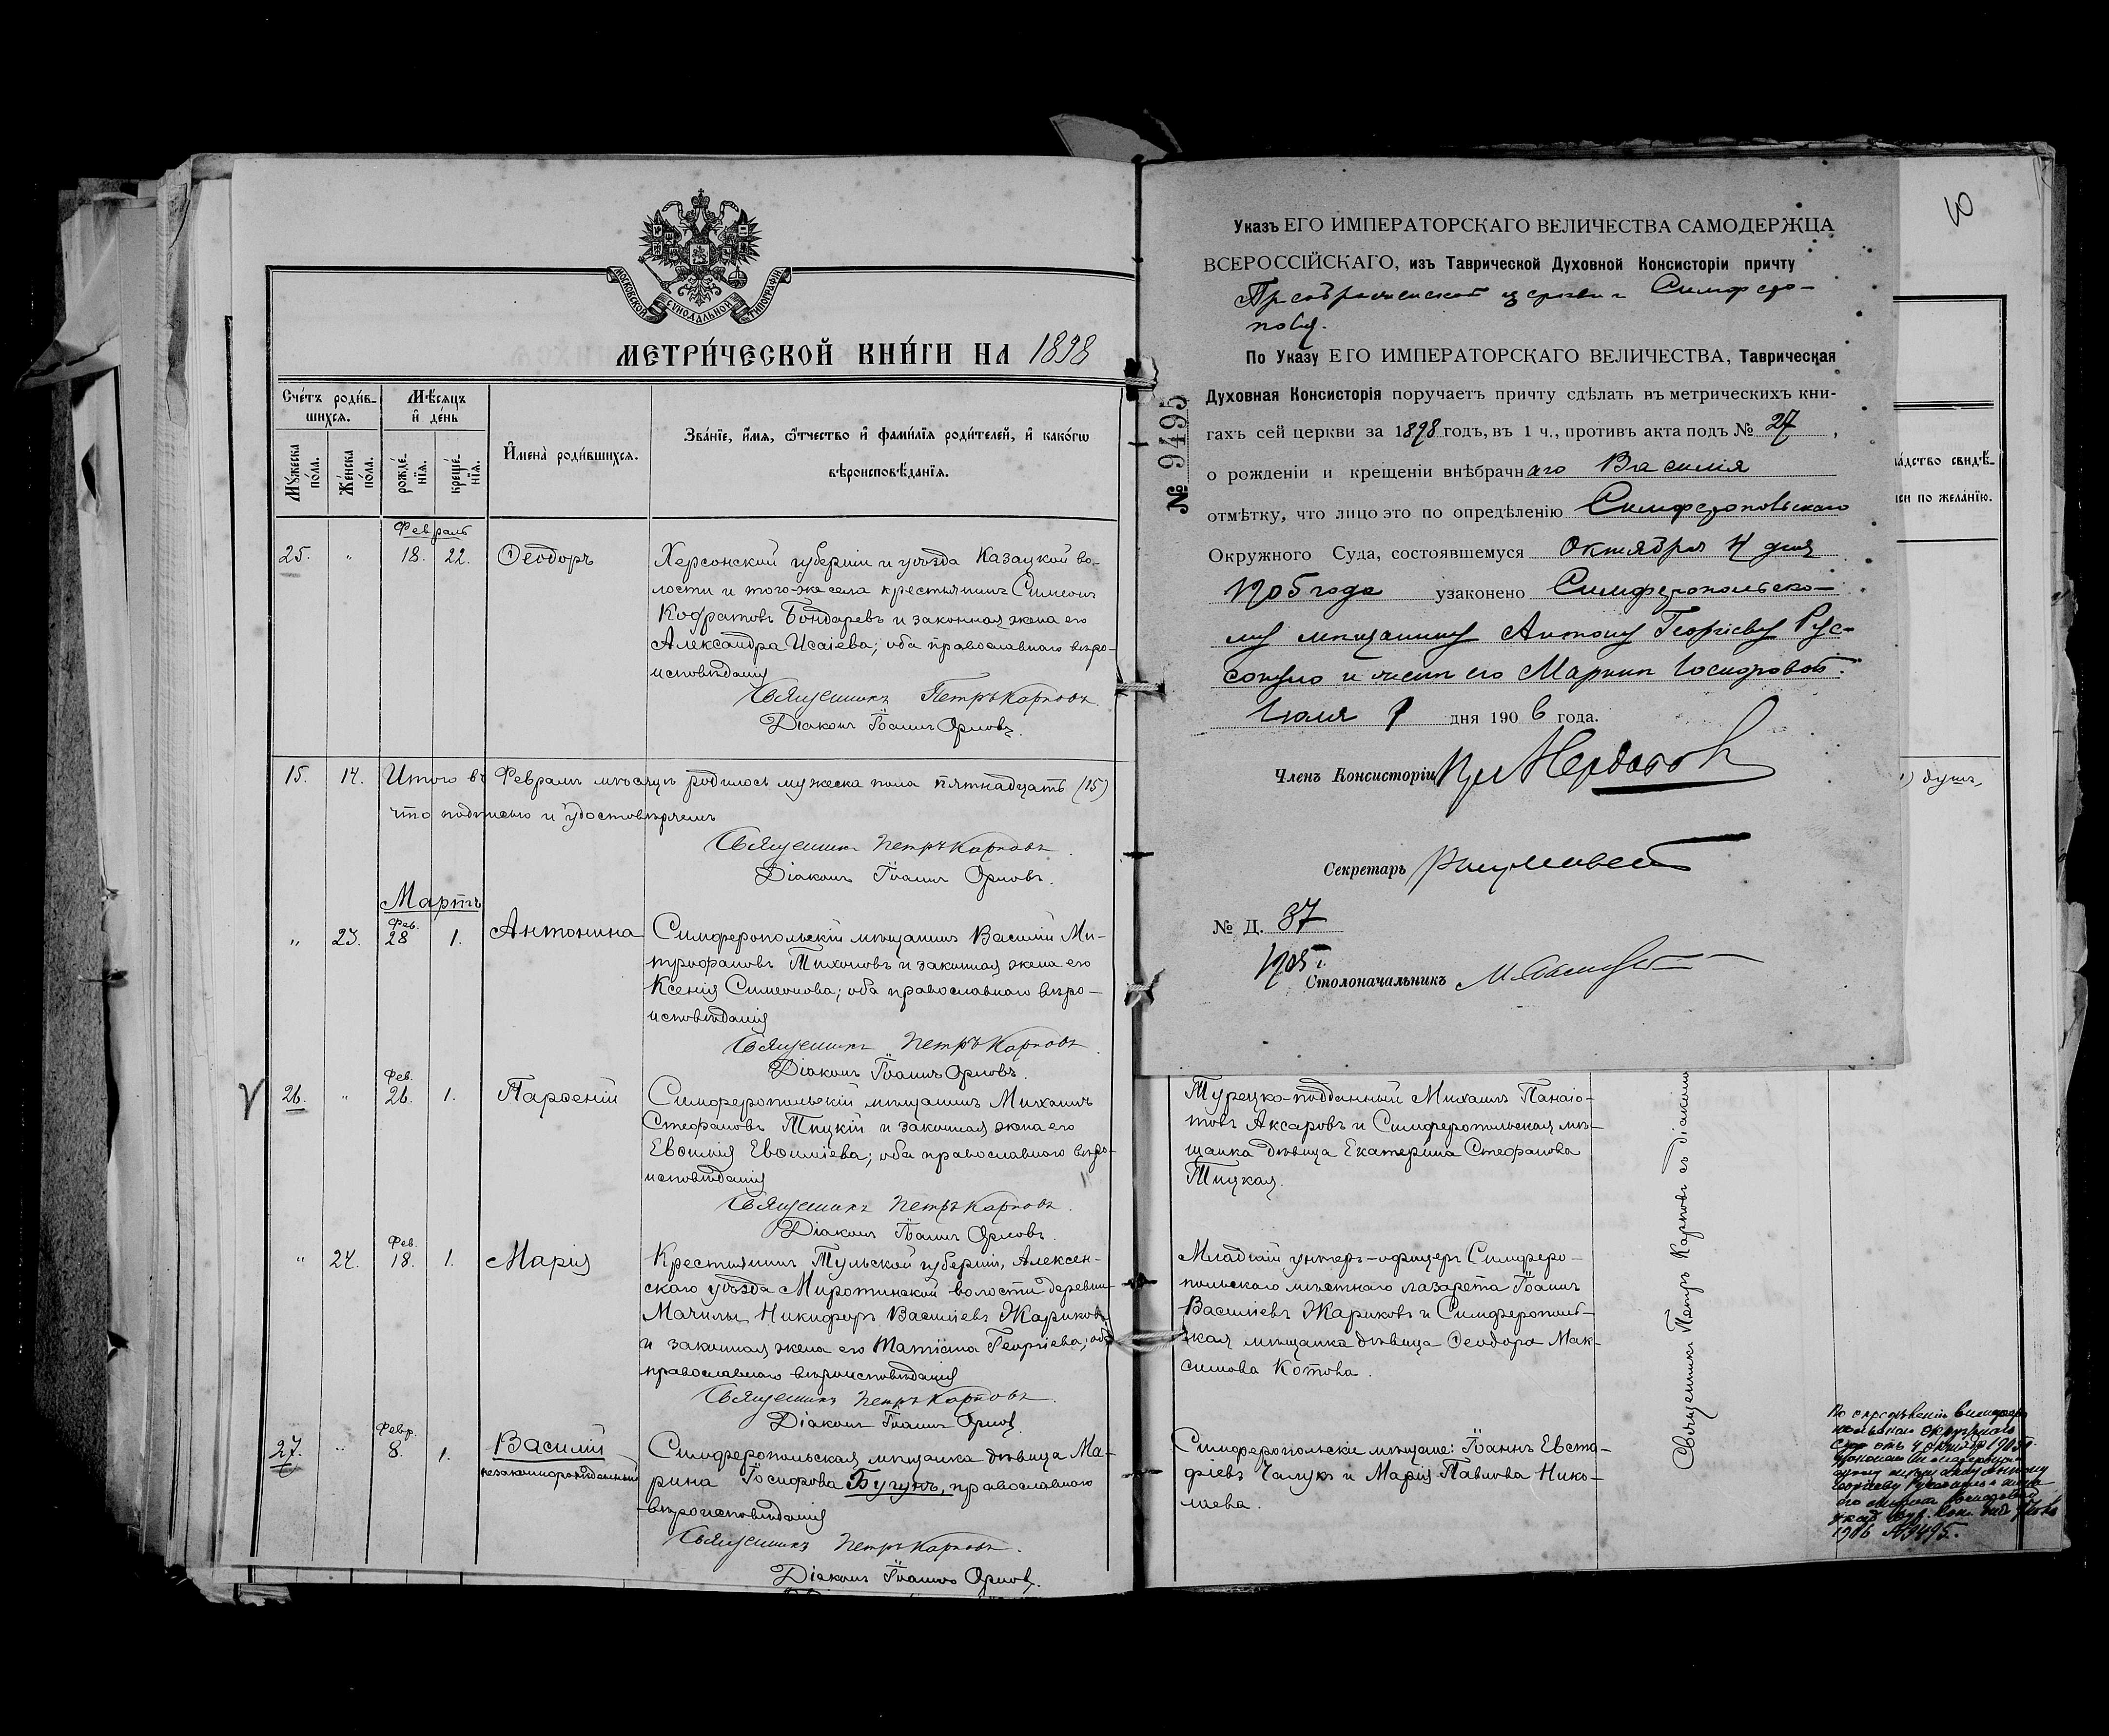 МОСКОВСКОЙ СѴНОДАЛЬНОЙ ТИПОГРАФІИ
МЕТРИ́ЧЕСКОЙ КНИ́ГИ НА 1898
Сче́тъ роди́в-
шихся.
Мѣ́сяцъ
и҆ де́нь
Му́жеска
по́ла.
Же́нска
по́ла.
рожде́-
нїя.
креще́-
нїя.
И҆мена̀ роди́вшихся.
Зва́нїе, и҆́мя, ѻ҆́тчество и҆ фами́лїя роди́телей, и҆ како́гѡ
вѣроисповѣ́данїя.
Февраль
25. " 18. 22. Ѳеодоръ
Херсонской губерніи и уѣзда Казацкой во-
лости и того-же села крестьянинъ Симеонъ
Кодратовъ Бондаревъ и законная жена его
Александра Исаіева; оба православнаго вѣро-
исповѣданія
Священникъ Петръ Карповъ.
Діаконъ Іоаннъ Орловъ.
15. 14. Итого въ Февралѣ мѣсяцѣ родилось мужеска пола пятнадцать (15)
что подписью и удостовѣряемъ
Священникъ Петръ Карповъ.
Діаконъ Іоаннъ Орловъ.
Мартъ
" 23. Фев. 28 1. Антонина
Симферопольскій мѣщанинъ Василій Ми-
трофановъ Тихоновъ и законная жена его
Ксенія Симеонова; оба православнаго вѣро-
исповѣданія
Священникъ Петръ Карповъ.
Діаконъ Іоаннъ Орловъ.
26. " Фев. 26. 1. Парѳеній
Симферопольскій мѣщанинъ Михаилъ
Стефановъ Тицкій и законная жена его
Евѳимія Евѳиміева; оба православнаго вѣро-
исповѣданія
Священникъ Петръ Карповъ.
Діаконъ Іоаннъ Орловъ.
" 24. Фев. 18. 1. Марія
Крестьянинъ Тульской губерніи, Алексен-
скаго уѣзда Миротинской волости деревни
Мачилы Никифоръ Васильевъ Жариковъ
и законная жена его Татіана Георгіева; оба
православнаго вѣроисповѣданія
Священникъ Петръ Карповъ.
Діаконъ Іоаннъ Орловъ.
27. " Февр. 8. 1. Василій
незаконнорожденный
Симферопольская мѣщанка дѣвица Ма-
рина Іосифова Бугунъ, православнаго
вѣроисповѣданія
Священникъ Петръ Карповъ.
Діаконъ Іоаннъ Орловъ.
№ 9495
Указъ ЕГО ИМПЕРАТОРСКАГО ВЕЛИЧЕСТВА САМОДЕРЖЦА
ВСЕРОССІЙСКАГО, изъ Таврической Духовной Консисторіи причту
Преображенской церкви г. Симферо-
поля.
По Указу ЕГО ИМПЕРАТОРСКАГО ВЕЛИЧЕСТВА, Таврическая
Духовная Консисторія поручаетъ причту сдѣлать въ метрическихъ кни-
гахъ сей церкви за 1898 годъ, въ 1 ч., противъ акта подъ № 27,
о рожденіи и крещеніи внѣбрачнаго Василія
отмѣтку, что лицо это по опредѣленію Симферопольскаго
Окружного Суда, состоявшемуся Октября 4 дня
1905 года узаконено Симферопольско-
му мѣщанину Антону Георгіеву Рус-
сопуло и женѣ его Маринѣ Іосифовой.
Іюля 7 дня 1906 года.
Членъ Консисторіи
Секретарь
№ Д. 37
1905 г.
Столоначальникъ
10
ѧ́дство свидѣ́-
иси по жела́нїю.
) душъ,
Турецко-подданный Михаилъ Панаіо-
товъ Аксаровъ и Симферопольская мѣ-
щанка дѣвица Екатерина Стефанова
Тицкая.
Младшій унтеръ-офицеръ Симферо-
польскаго мѣстнаго лазарета Іоаннъ
Васильевъ Жариковъ и Симферополь-
ская мѣщанка дѣвица Ѳеодора Мак-
симова Котова.
Симферопольскіе мѣщане: Іоаннъ Евста-
фіевъ Чалукъ и Марія Павлова Нико-
лаева.
Священникъ Петръ Карповъ съ діакономъ
По опредѣленію Симферо-
польскаго Окружнаго
Суда отъ 4 октября 1905 г.
узаконенъ Симферопольск
мѣщанину Антону
Георгіеву Руссопуло и женѣ
его Маринѣ Іосифовой
Указ
1906 №9495.